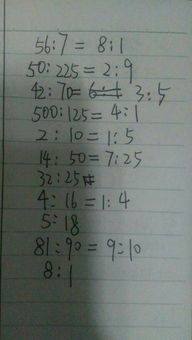 56:7 = 8:1
50:225 = 2:9
42:70 = 3:5
500:125 = 4:1
2:10 = 1:5
14:50 = 7:25
32:25
4:16 = 1:4
5:18
81:90 = 9:10
8:1